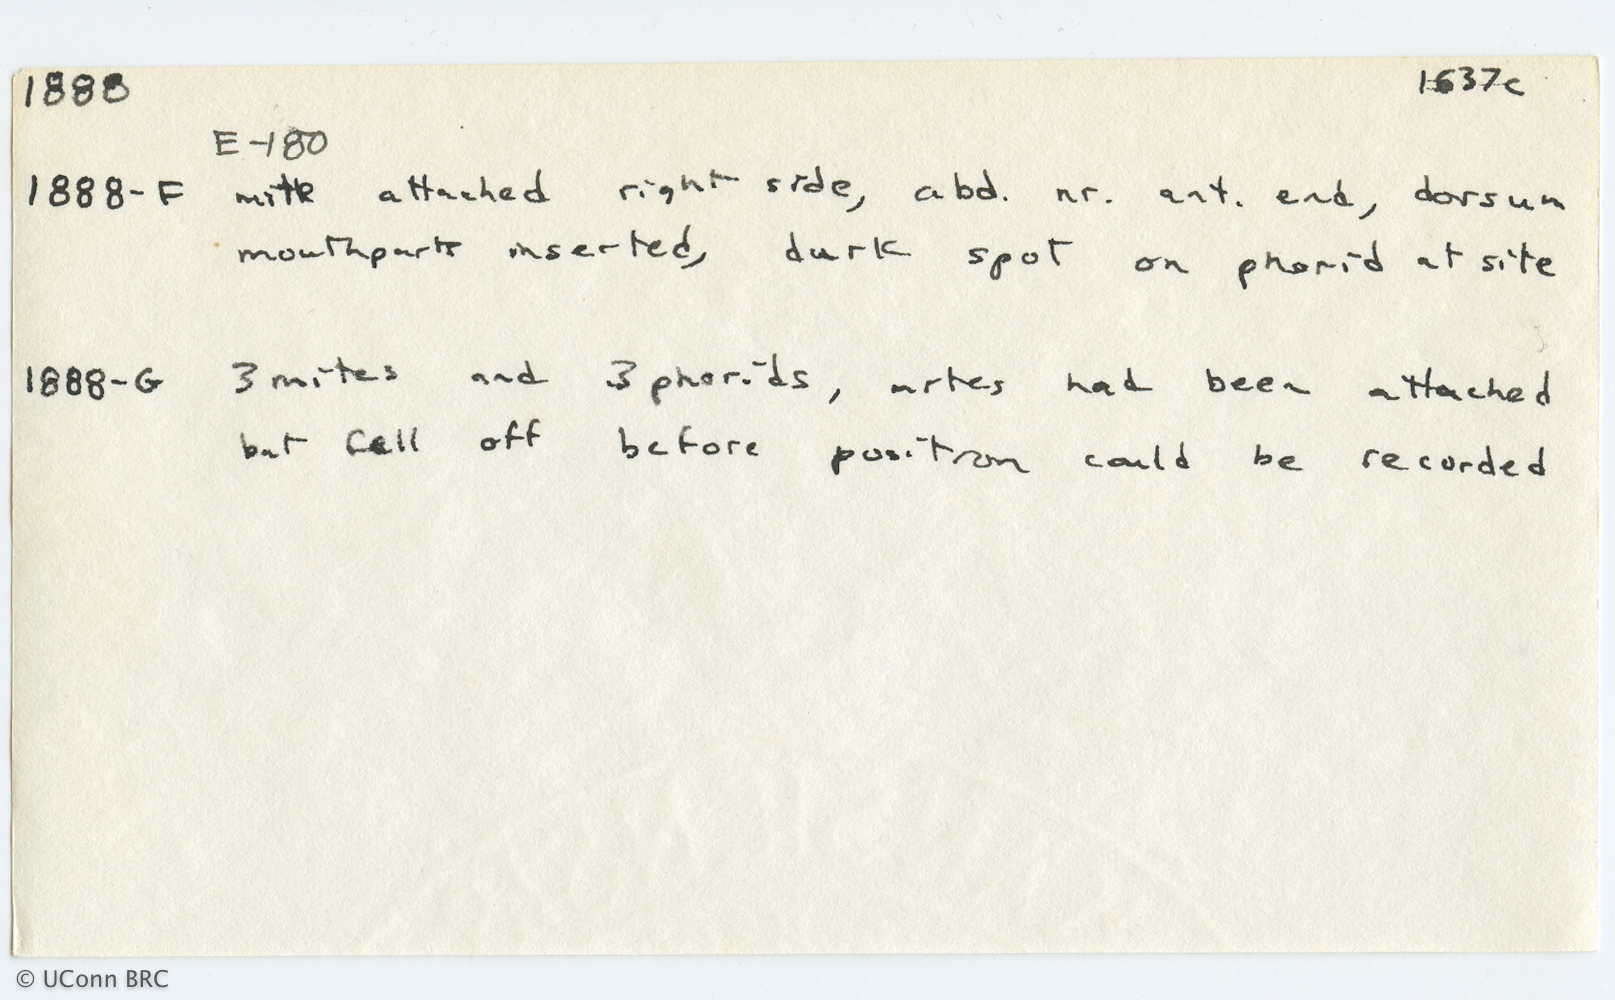 1888 1637c
E-180
1888-F mite attached right side, abd. nr. ant. end, dorsum
mouthparts inserted, dark spot on phorid at site
1888-G 3 mites and 3 phorids, mites had been attached
but fell off before position could be recorded
© UConn BRC